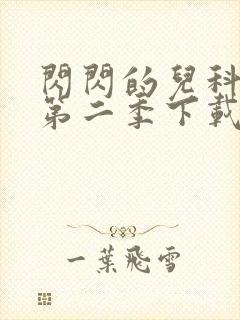 閃閃的兒科
第二季下載
一葉飛雪